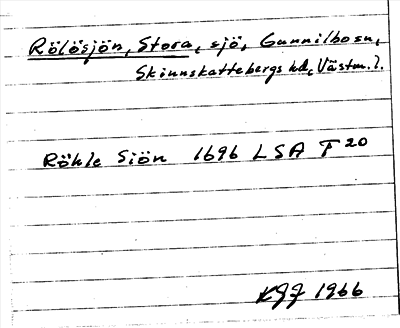 Rölösjön, Stora, sjö, Gunnilbo sn,
Skinnskattebergs hd, Västm. l.
Röhle Siön 1696 LSA T 20
KGJ 1966